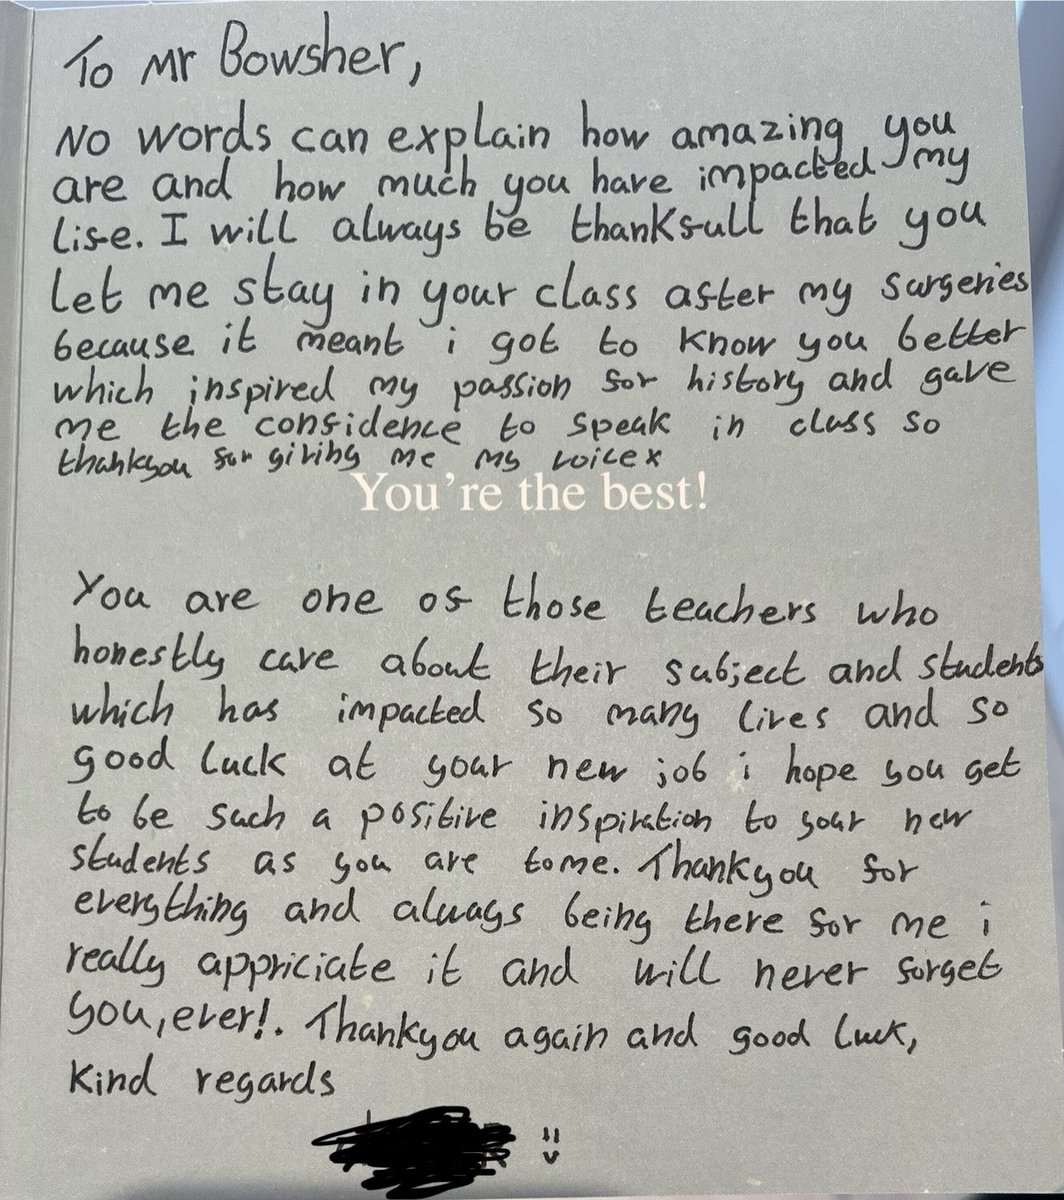 To Mr Bowsher,
No words can explain how amazing you
are and how much you have impacted my
life. I will always be thankfull that you
let me stay in your class after my surgeries
because it meant i got to know you better
which inspired my passion for history and gave
me the confidence to speak in class so
thankyou for giving me my voice x
You're the best!
You are one of those teachers who
honestly care about their subject and students
which has impacted so many lives and so
good luck at your new job i hope you get
to be such a positive inspiration to your new
students as you are tome. Thankyou for
everything and always being there for me i
really appriciate it and will never forget
you, ever!. Thankyou again and good luck,
Kind regards